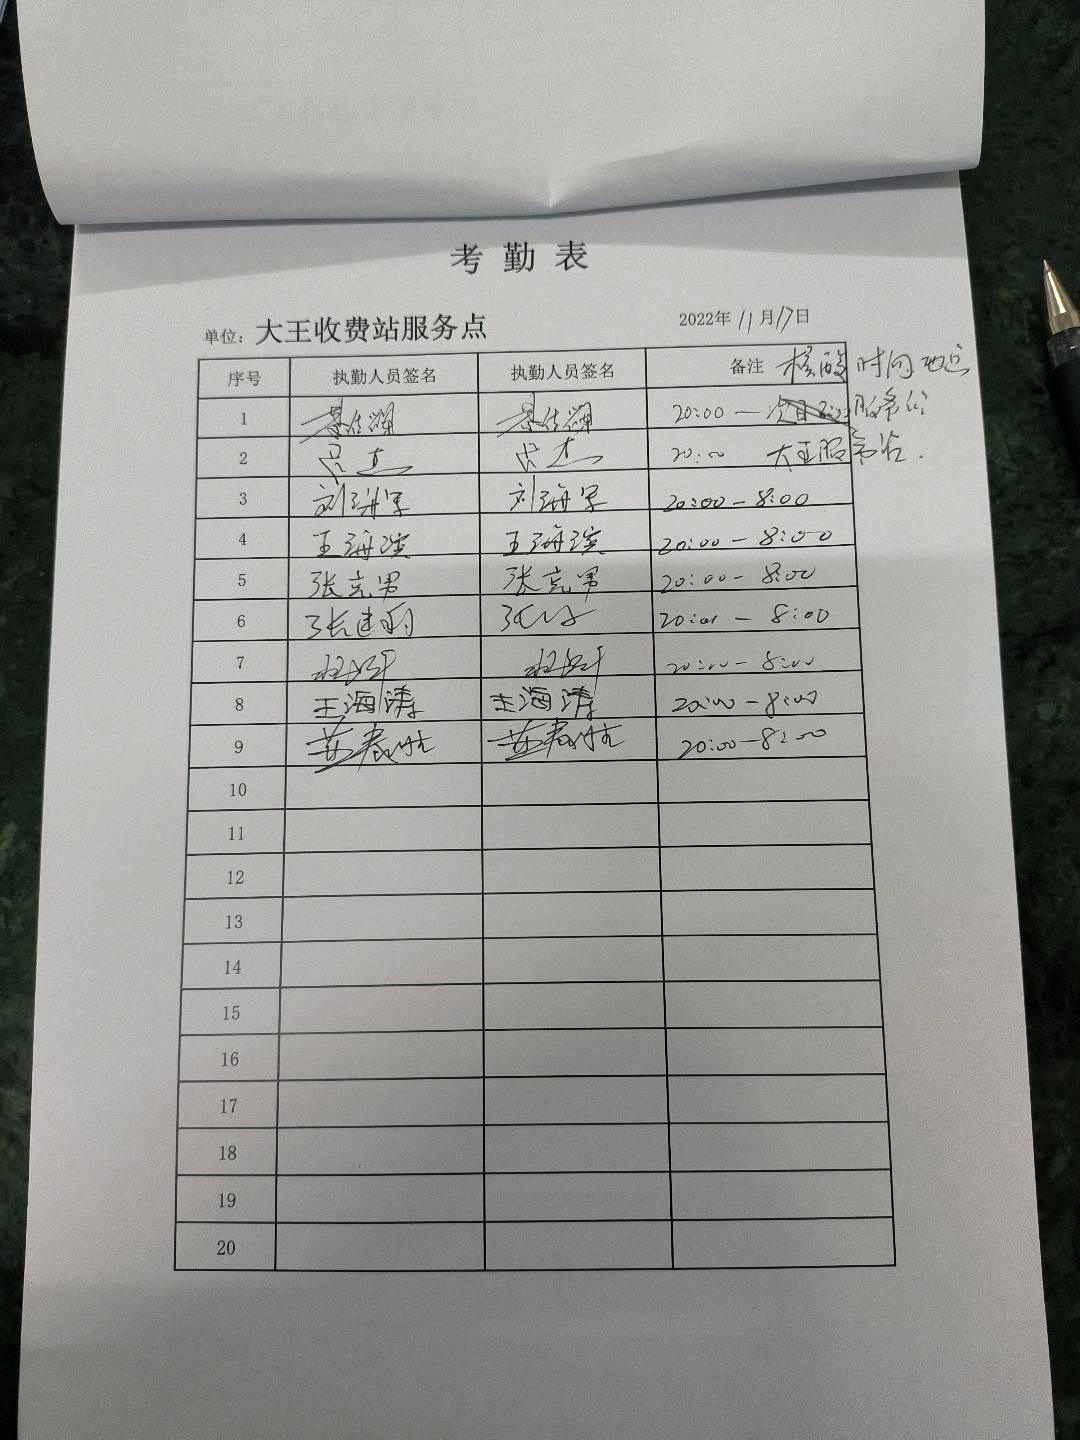 考勤表
单位：大王收费站服务点 2022年11月17日
序号 执勤人员签名 执勤人员签名 备注 核酸时间地点
1 20:00—
2 20:00 大王服务站.
3 刘海军 刘海军 20:00-8:00
4 王海滨 王海滨 20:00-8:00
5 张克男 张克男 20:00-8:00
6 20:00-8:00
7 20:00-8:00
8 王海涛 王海涛 20:00-8:00
9 20:00-8:00
10
11
12
13
14
15
16
17
18
19
20